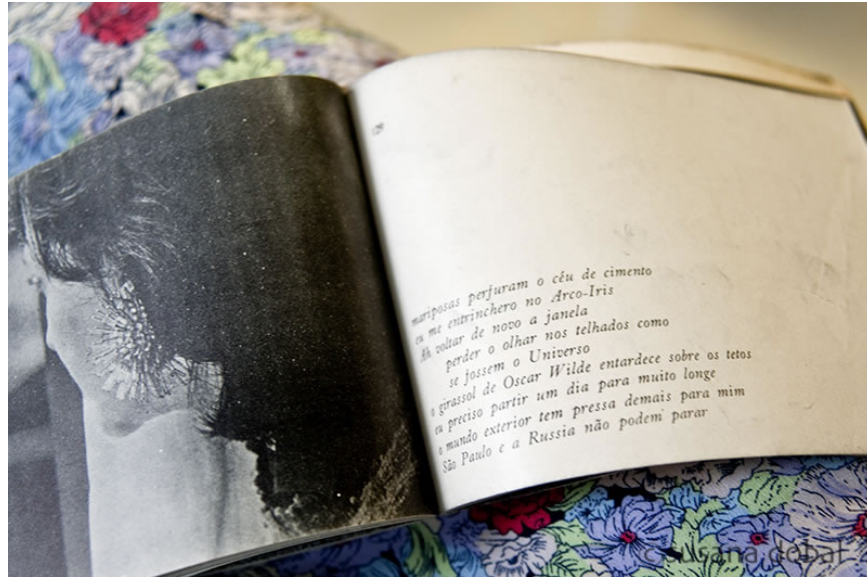 mariposas perfuram o céu de cimento
eu me entrinchero no Arco-Iris
Ah voltar de novo a janela
perder o olhar nos telhados como
se fossem o Universo
o girassol de Oscar Wilde entardece sobre os tetos
eu preciso partir um dia para muito longe
o mundo exterior tem pressa demais para mim
São Paulo e a Russia não podem parar
© susana dobal